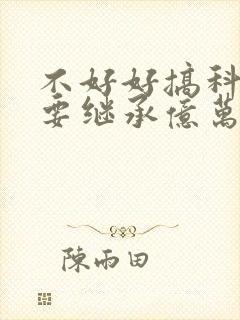 不好好搞科
要继承億萬
陳雨田